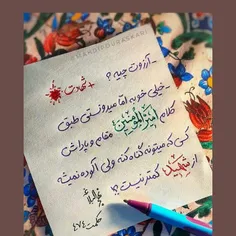 - آرزوت چیه؟
+ شهادت
- خیلی خوبه اما میدونستی طبق
کلام امیرالمؤمنین مقام و پاداش
کسی که میتونه گناه کنه ولی آلوده نمیشه
از شهید کمتر نیست؟!
نهج البلاغه
حکمت ۴۷۴